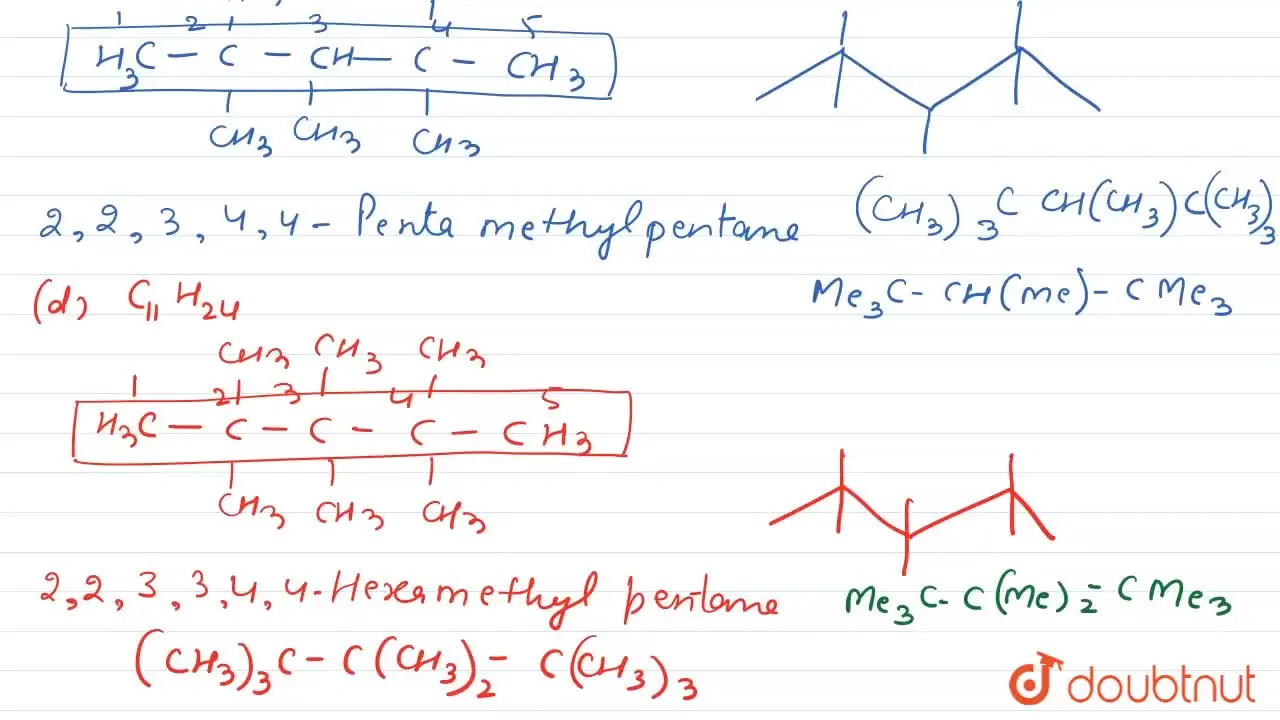 1 2 3 4 5
H3C — C — CH — C — CH3
CH3 CH3 CH3
2, 2, 3, 4, 4 - Penta methylpentane
(CH3)3C CH(CH3)C(CH3)3
Me3C- CH(me)- CMe3
(d) C11H24
CH3 CH3 CH3
1 2 3 4 5
H3C — C — C — C — CH3
CH3 CH3 CH3
2,2, 3,3,4,4-Hexamethyl pentane
Me3C- C(Me)2- CMe3
(CH3)3C - C(CH3)2 - C(CH3)3
doubtnut